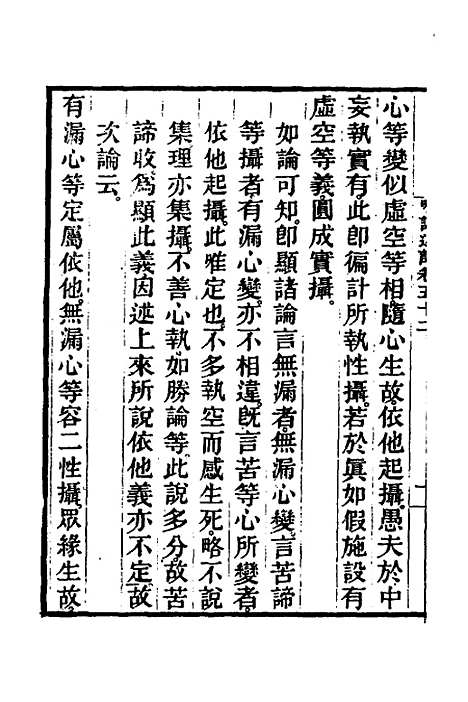 心等變似虛空等相隨心生故依他起攝愚夫於中
妄執實有此卽徧計所執性攝若於眞如假施設有
虛空等義圓成實攝
如論可知卽顯諸論言無漏者無漏心變言苦諦
等攝者有漏心變亦不相違旣言苦等心所變者
依他起攝此唯定也不多執空而感生死略不說
集理亦集攝不善心執如勝論等此說多分故苦
諦收爲顯此義因述上來所說依他義亦不定故
次論云
有漏心等定屬依他無漏心等容二性攝眾緣生故